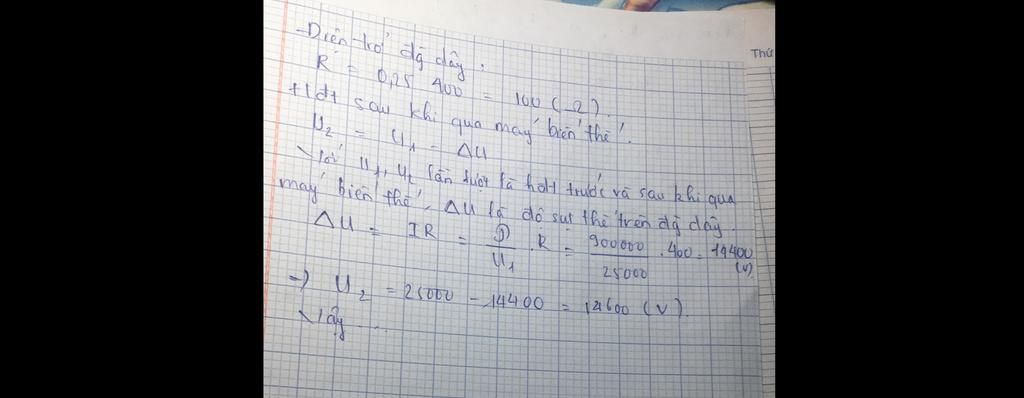 - Điện trở đg dây.
R = 0,25 . 400 = 100 (Ω).
+ Hđt sau khi qua máy biến thế.
U2 = U1 - ΔU
Với U1, U2 lần lượt là hđt trước và sau khi qua
máy biến thế, ΔU là độ sụt thế trên đg dây.
ΔU = IR = P/U1 . R = 900000/25000 . 400 = 14400 (V)
=> U2 = 25000 - 14400 = 12600 (V).
Vậy ...
Thứ